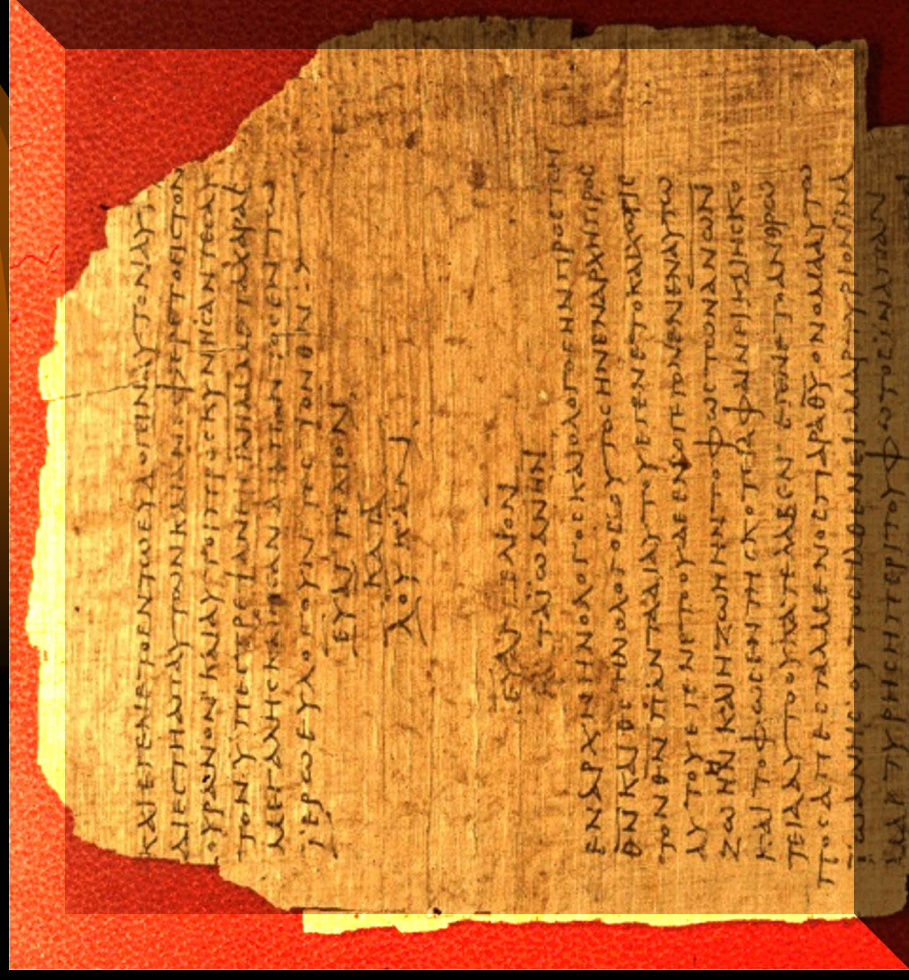 ΚΑΙΕΓΕΝΕΤΟΕΝΤΩΕΥΛΟΓΕΙΝΑΥΤΟΝΑΥΤΟΥ
ΔΙΕϹΤΗΑΠΑΥΤΩΝΚΑΙΑΝΕΦΕΡΕΤΟΕΙϹΤΟΝ
ΟΥΡΑΝΟΝΚΑΙΑΥΤΟΙΠΡΟϹΚΥΝΗϹΑΝΤΕϹΑΥ
ΤΟΝΥΠΕϹΤΡΕΨΑΝΕΙϹΙΗΛΜΜΕΤΑΧΑΡΑϹ
ΜΕΓΑΛΗϹΚΑΙΗϹΑΝΔΙΑΠΑΝΤΟϹΕΝΤΩ
ΙΕΡΩΕΥΛΟΓΟΥΝΤΕϹΤΟΝΘΝ:>
ΕΥΑΓΓΕΛΙΟΝ
ΚΑΤΑ
ΛΟΥΚΑΝ
ΕΥΑΓΓΕΛΙΟΝ
ΚΑΤΑΪΩΑΝΗΝ
ΕΝΑΡΧΗΗΝΟΛΟΓΟϹΚΑΙΟΛΟΓΟϹΗΝΠΡΟϹΤΟΝ
ΘΝΚΑΙΘϹΗΝΟΛΟΓΟϹΟΥΤΟϹΗΝΕΝΑΡΧΗΠΡΟϹ
ΤΟΝΘΝΠΑΝΤΑΔΙΑΥΤΟΥΕΓΕΝΕΤΟΚΑΙΧΩΡΙϹ
ΑΥΤΟΥΕΓΕΝΕΤΟΟΥΔΕΕΝ·ΟΓΕΓΟΝΕΝΕΝΑΥΤΩ
ΖΩΗΗΝΚΑΙΗΖΩΗΗΝΤΟΦΩϹΤΩΝΑΝΩΝ
ΚΑΙΤΟΦΩϹΕΝΤΗϹΚΟΤΙΑΦΑΙΝΕΙΚΑΙΗϹΚΟ
ΤΕΙΑΑΥΤΟΟΥΚΑΤΕΛΑΒΕΝ ΕΓΕΝΕΤΟΑΝΘΡΩ
ΠΟϹΑΠΕϹΤΑΛΜΕΝΟϹΠΑΡΑΘΥΟΝΟΜΑΑΥΤΩ
ΪΩΑΝΗϹΟΥΤΟϹΗΛΘΕΝΕΙϹΜΑΡΤΥΡΙΑΝΙΝΑ
ΜΑΡΤΥΡΗϹΗΠΕΡΙΤΟΥΦΩΤΟϹΙΝΑΠΑΝ